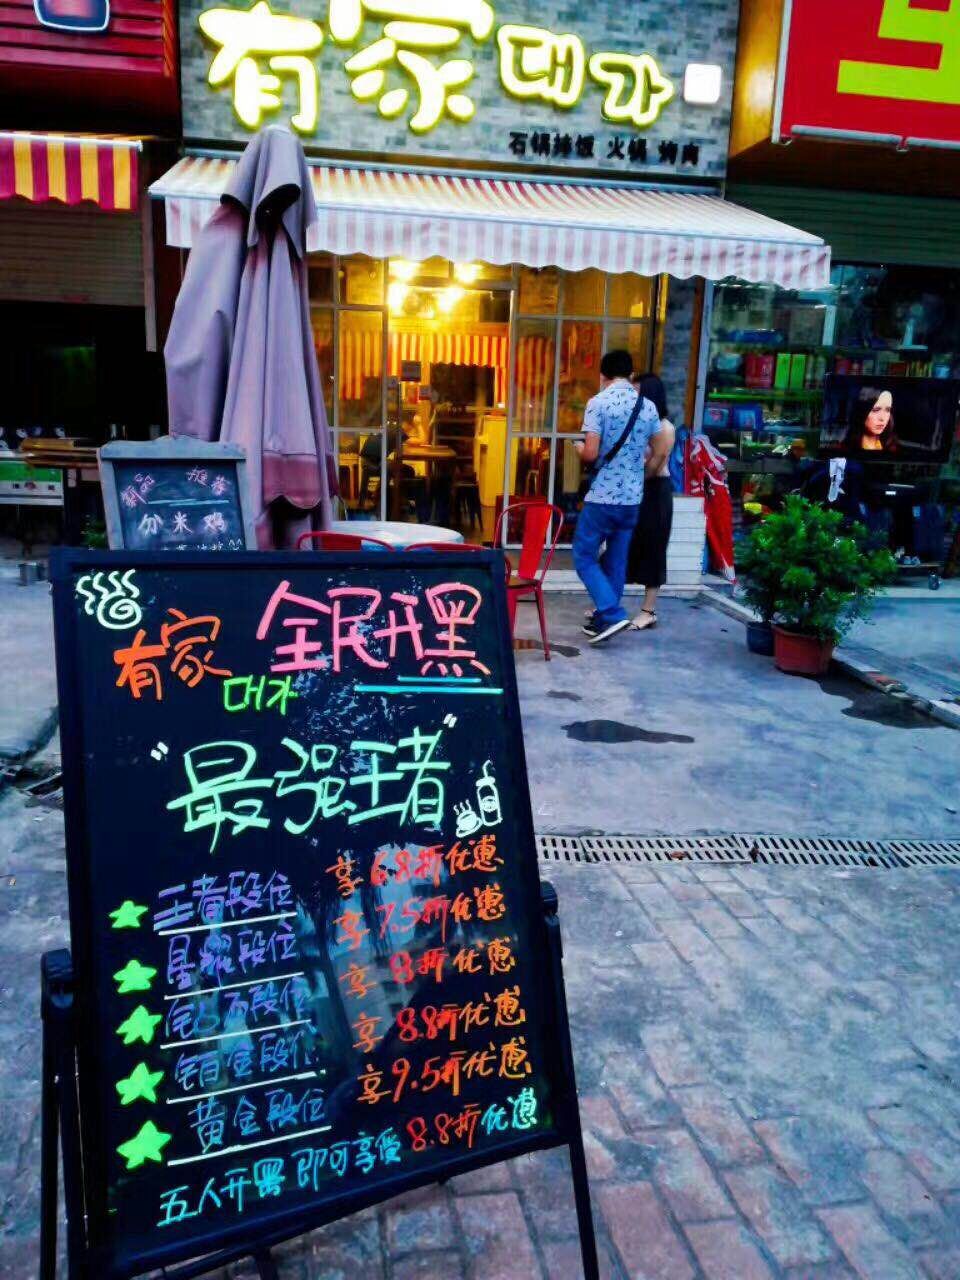 有家대가
石锅拌饭 火锅 烤肉
新品
分米鸡
有家
대가
全民开黑
"最强王者"
王者段位 享6.8折优惠
星耀段位 享7.5折优惠
钻石段位 享8折优惠
铂金段位 享8.8折优惠
黄金段位 享9.5折优惠
五人开黑 即可享受8.8折优惠